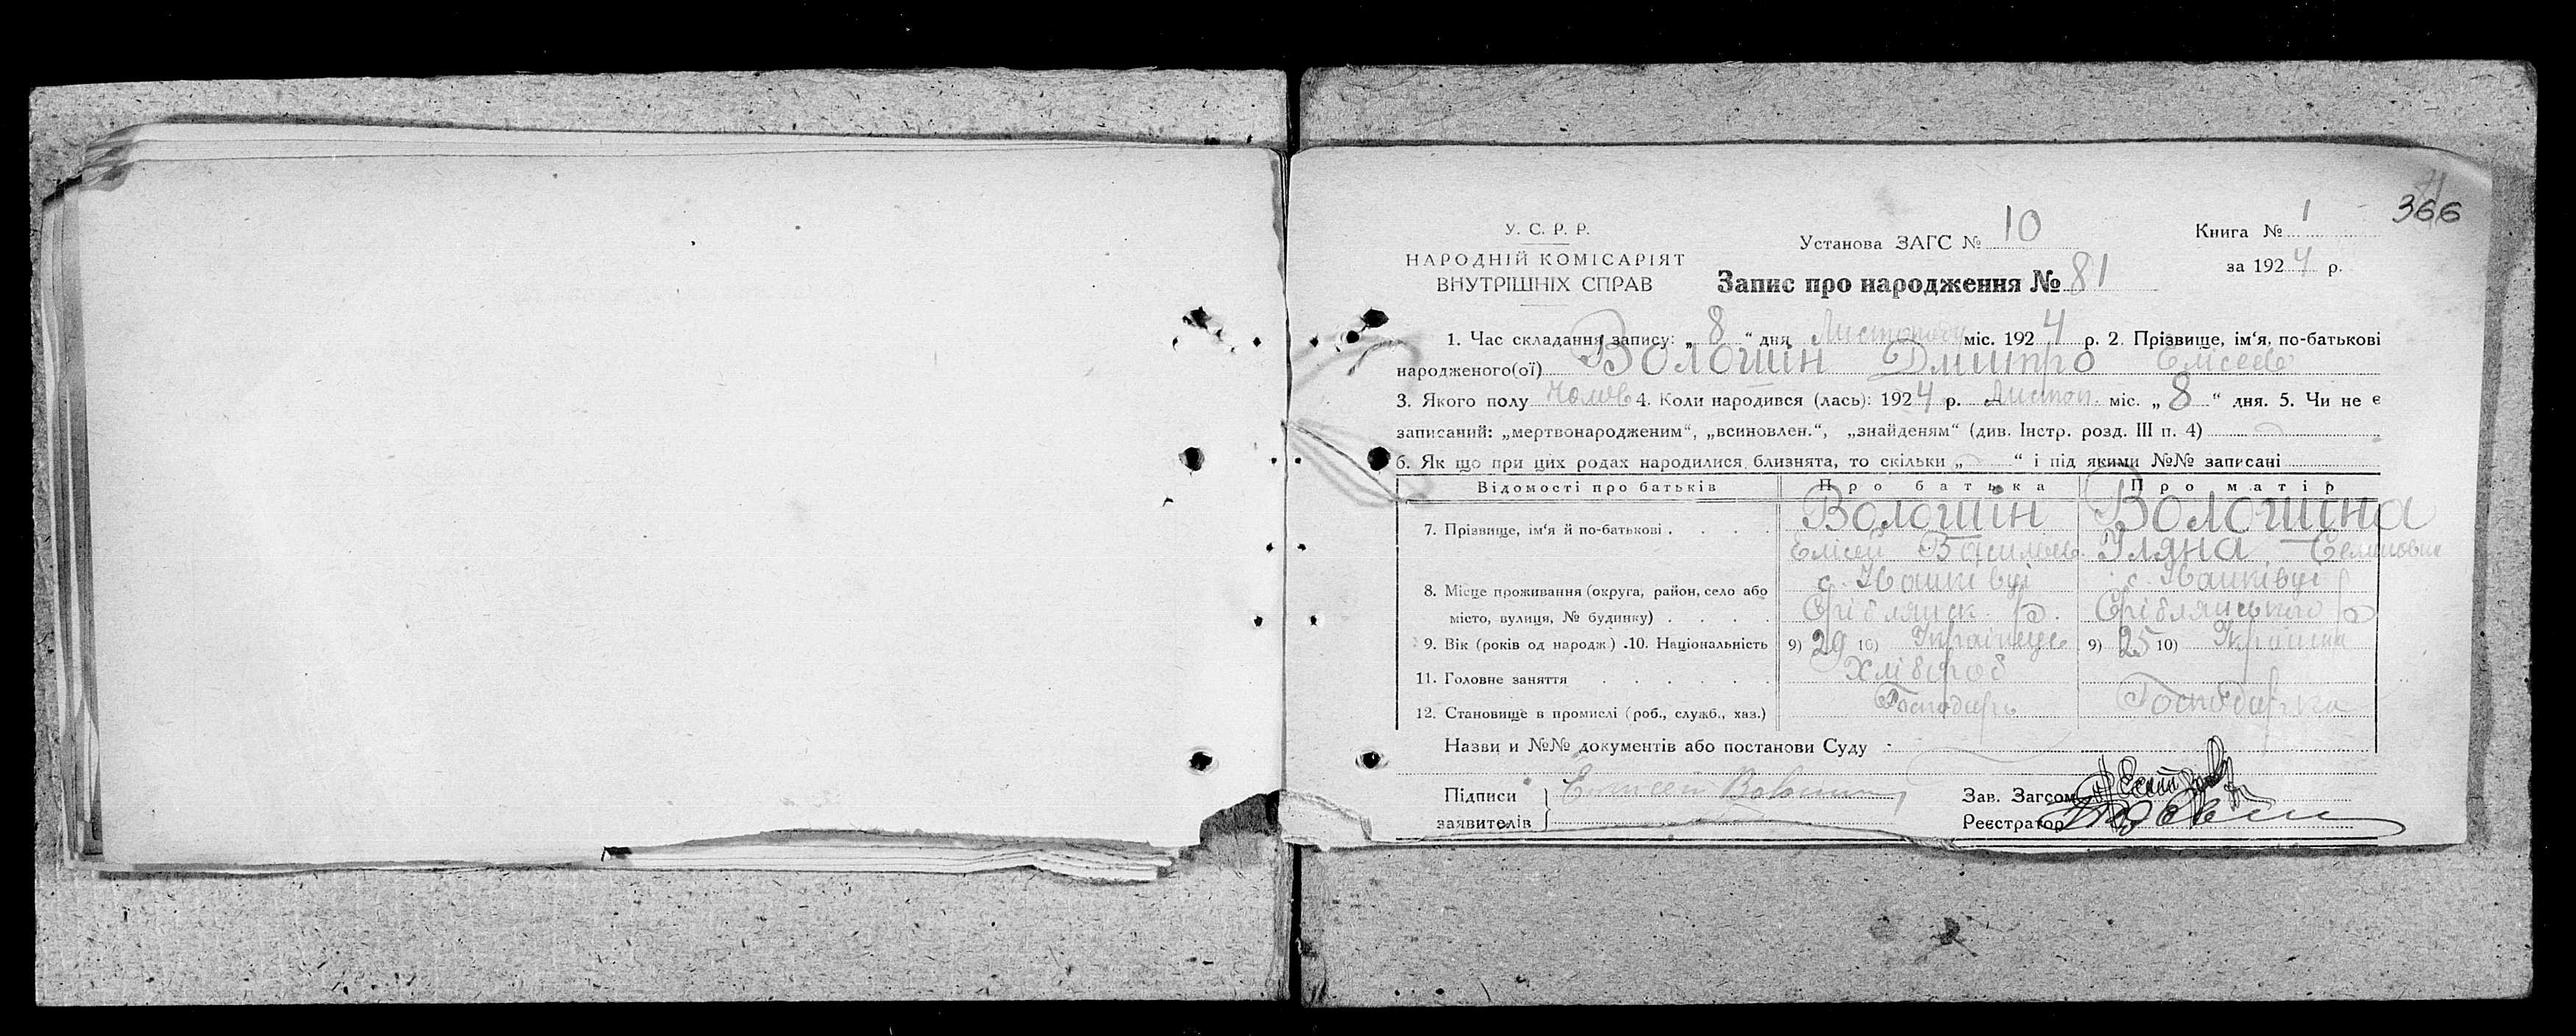 366
У. С. Р. Р.
НАРОДНІЙ КОМІСАРІЯТ
ВНУТРІШНІХ СПРАВ
Установа ЗАГС № 10
Книга № 1
за 1924 р.
Запис про народження № 81
1. Час складання запису: „ 8 “ дня Листопаду міс. 1924 р. 2. Прізвище, ім‘я, по-батькові
народженого(ої) Волошін Дмитро Елісеев
3. Якого полу Чолов 4. Коли народився (лась): 1924 р. Листоп. міс. „ 8 “ дня. 5. Чи не є
записаний: „мертвонародженим“, „всиновлен.“, „знайденям“ (див. Інстр. розд. III п. 4)
6. Як що при цих родах народилися близнята, то скільки „ “ і під якими №№ записані
Відомості про батьків Про батька Про матір
7. Прізвище, ім‘я й по-батькові Волошін Волошіна
Елісей Васильев Уляна Семеновна
8. Місце проживання (округа, район, село або с. Іванківці с. Іванківці
місто, вулиця, № будинку) Сріблянск. р. Сріблянського р
9. Вік (років од народж.) .10. Національність 9) 29 10) Українець 9) 25 10) Українка
11. Головне заняття Хлібороб
12. Становище в промислі (роб., служб., хаз.) Господарь Господарька
Назви и №№ документів або постанови Суду
Підписи
заявителів
Зав. Загсом
Реєстратор